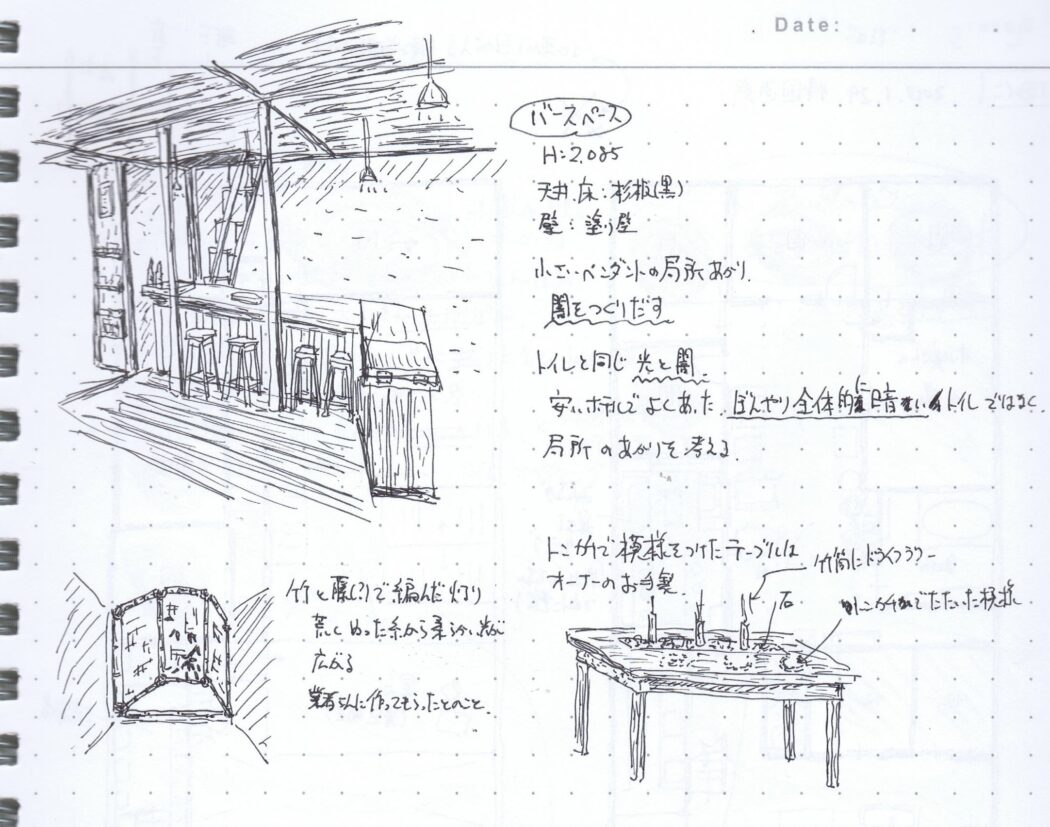 Date:
バースペース
H=2.085
天井.床:杉板(黒)
壁:塗り壁
小さいペンダントの局所あかり.
闇をつくりだす
トイレと同じ 光と闇.
安いホテルでよくあった.ぼんやり全体的に暗いトイレではなく.
局所のあかりを考える.
トンカチで模様をつけたテーブルは
オーナーのお手製.
竹筒にドライフラワー
石
トンカチでたたいた模様
竹と藤(?)で編んだ灯り
荒く ぬった糸から柔らかい光が
広がる
業者さんに作ってもらったとのこと.